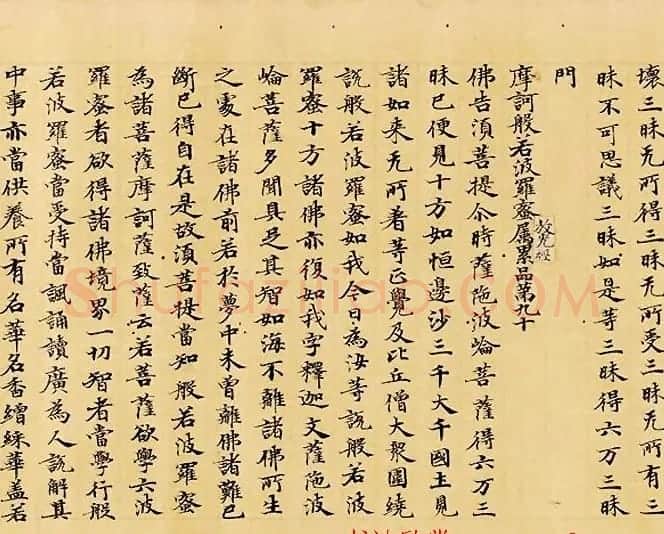 壞三昧无所得三昧无所受三昧无所有三
昧不可思議三昧如是等三昧得六万三昧
門
摩訶般若波羅蜜属累品第九十
放光經
佛告須菩提尒時薩陁波崘菩薩得六万三
昧已便見十方如恒邊沙三千大千國土見
諸如来无所著等正覺及比丘僧大衆圍繞
說般若波羅蜜如我今日為汝等說般若波
羅蜜十方諸佛亦復如我字釋迦文薩陁波
崘菩薩多聞具足其智如海不離諸佛所生
之䖏在諸佛前若於夢中未曾離佛諸難已
斷已得自在是故須菩提當知般若波羅蜜
為諸菩薩摩訶薩致薩云若菩薩欲學六波
羅蜜者欲得諸佛境界一切智者當學行般
若波羅蜜當受持當諷誦讀廣為人說解其
中事亦當供養所有名華名香繒綵華盖若
Shufaziliao.COM